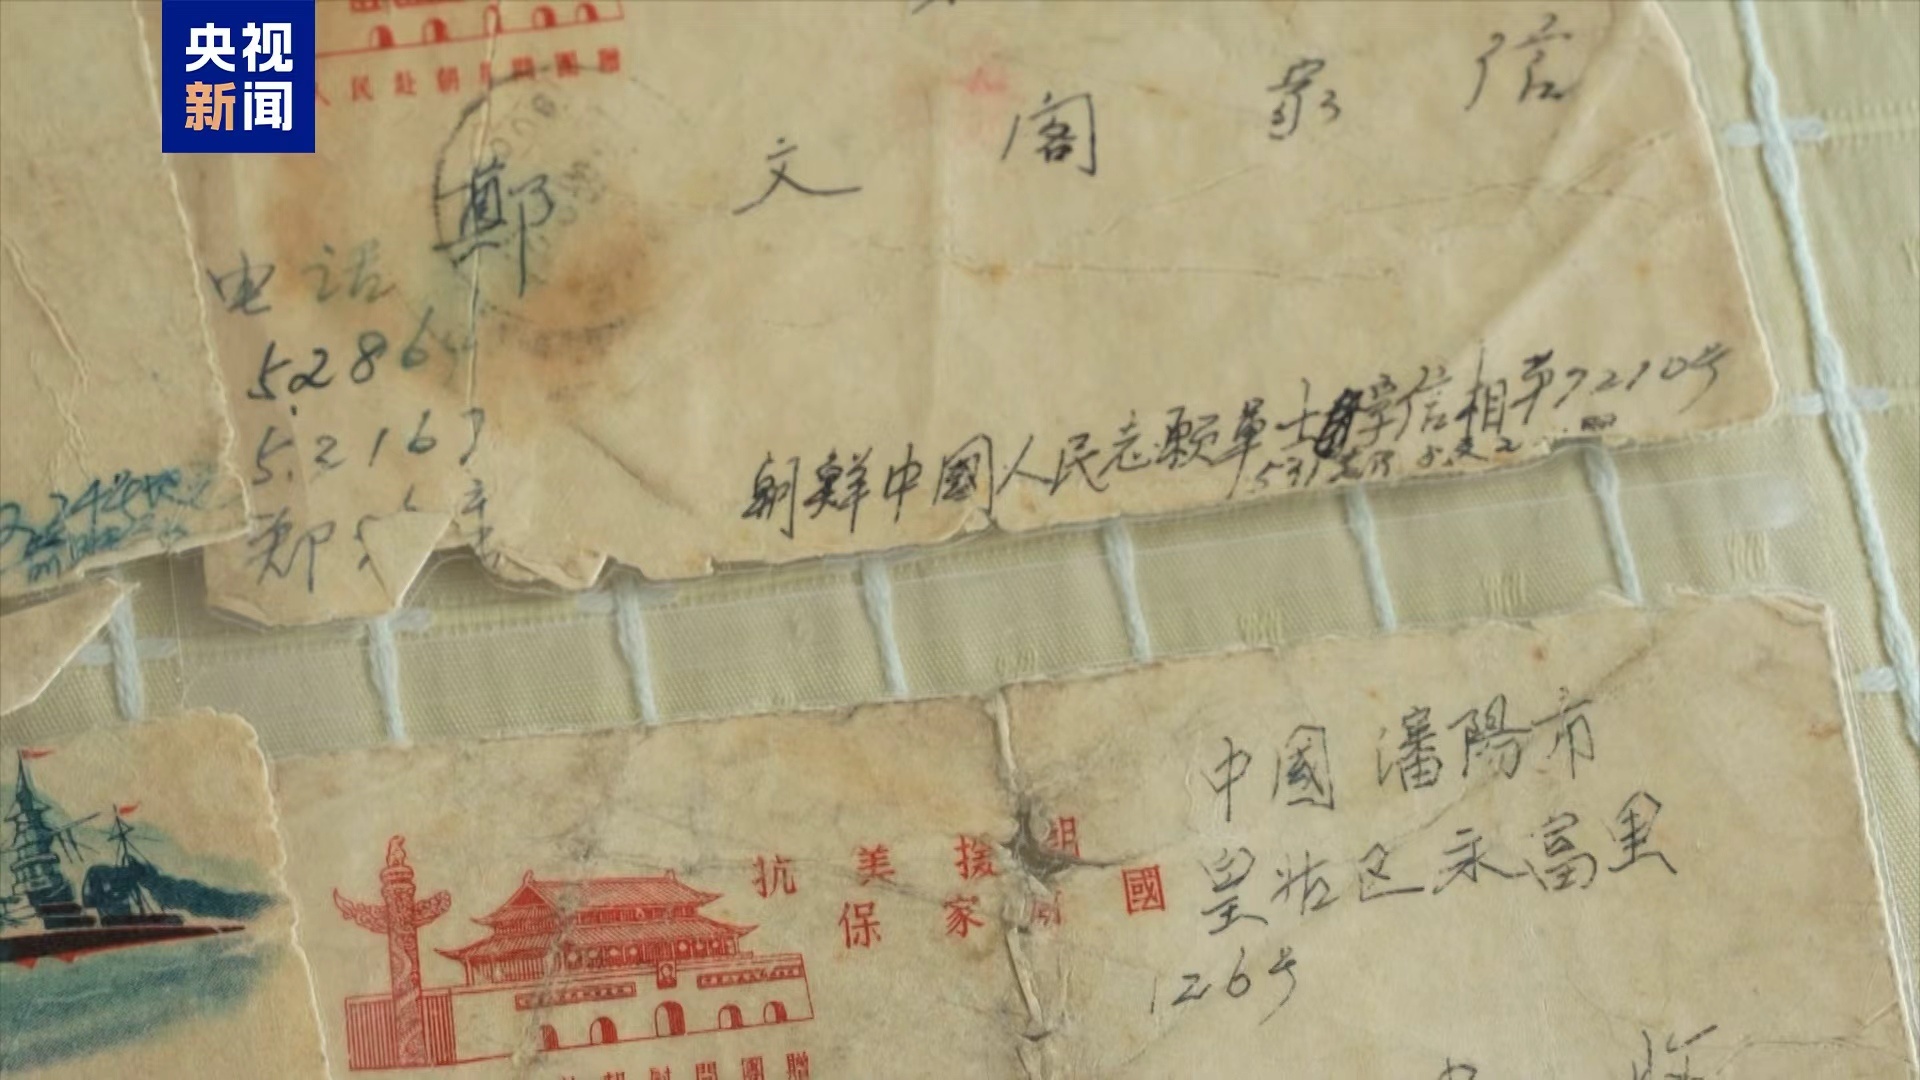 央视
新闻
人民赴朝慰問團贈
鄭文阁家信
电话
5286
52163
郑
朝鲜中國人民志願軍士兵信相第7210号
中國瀋陽市
皇姑区永富里
126号
抗美援朝
保家衛國
赴朝慰問團贈